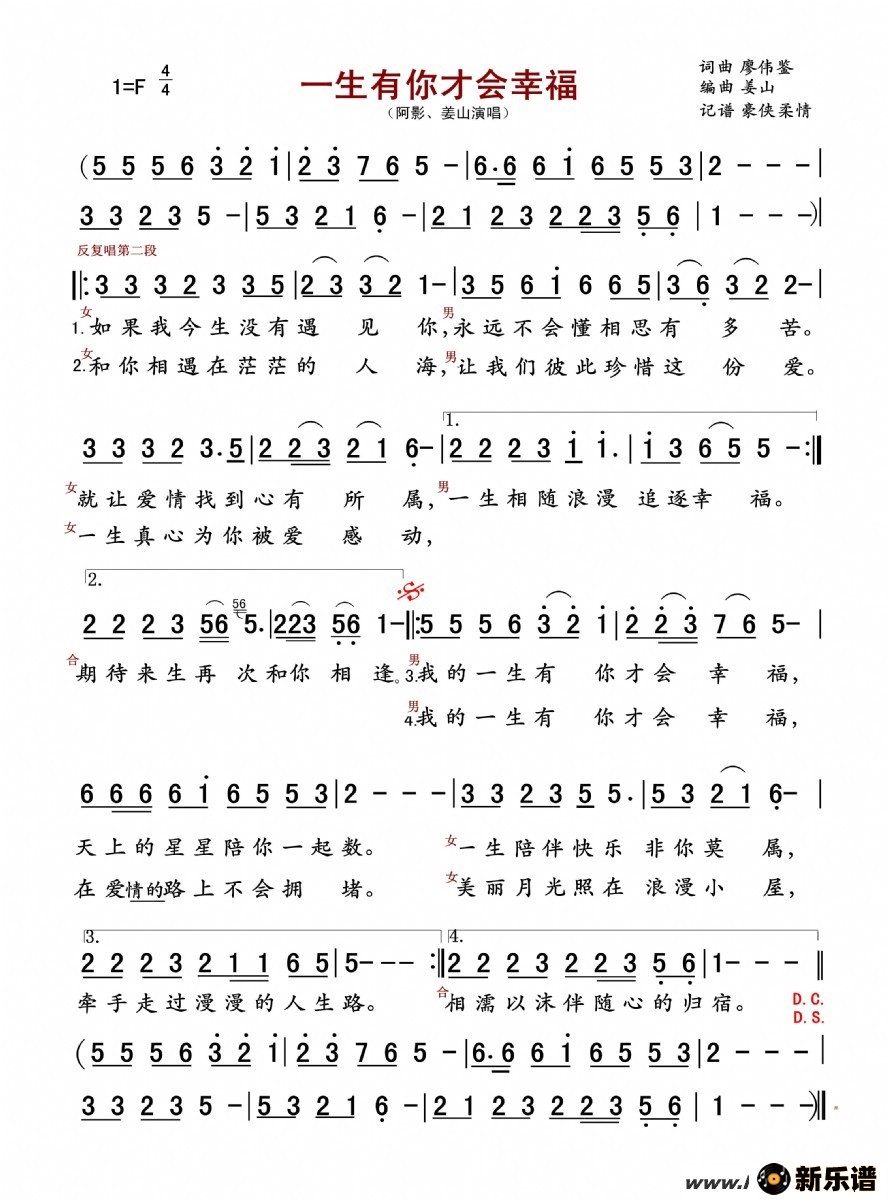 1=F 4/4
一生有你才会幸福
（阿影、姜山演唱）
词曲 廖伟鉴
编曲 姜山
记谱 豪侠柔情
(5 5 5 6 3 2 1|2 3 7 6 5 -|6.6 6 1 6 5 5 3|2 - - -|
3 3 2 3 5 -|5 3 2 1 6 -|2 1 2 3 2 2 3 5 6|1 - - -)|
反复唱第二段
‖:3 3 3 2 3 3 5|2 3 3 2 1-|3 5 6 1 6 5 5|3 6 3 2 2-|
女 男
1.如果我今生没有遇 见 你,永远不会懂相思有 多 苦。
女 男
2.和你相遇在茫茫的 人 海,让我们彼此珍惜这 份 爱。
1.
3 3 3 2 3.5|2 2 3 2 1 6-|2 2 2 3 1 1.|1 3 6 5 5 -:‖
女 男
就让爱情找到心有 所 属,一生相随浪漫 追逐幸 福。
女
一生真心为你被爱 感 动,
2.
2 2 2 3 56 56 5.|223 56 1-‖:5 5 5 6 3 2 1|2 2 3 7 6 5-|
合 男
期待来生再 次和你 相 逢。3.我的一生有 你才会 幸 福,
男
4.我的一生有 你才会 幸 福,
6 6 6 6 1 6 5 5 3|2 - - -|3 3 2 3 5 5.|5 3 2 1 6-|
女
天上的星星陪你一起数。 一生陪伴快乐 非你莫 属,
女
在爱情的路上不会拥 堵。 美丽月光照在 浪漫小 屋,
3. 4.
2 2 2 3 2 1 1 6 5|5- - - :‖2 2 2 3 2 2 3 5 6|1- - - ‖
合
牵手走过漫漫的人生路。 相濡以沫伴随心的归宿。
D.C.
D.S.
(5 5 5 6 3 2 1|2 3 7 6 5 -|6.6 6 1 6 5 5 3|2 - - -|
3 3 2 3 5 -|5 3 2 1 6 -|2 1 2 3 2 2 3 5 6|1 - - -)‖
www.
新乐谱